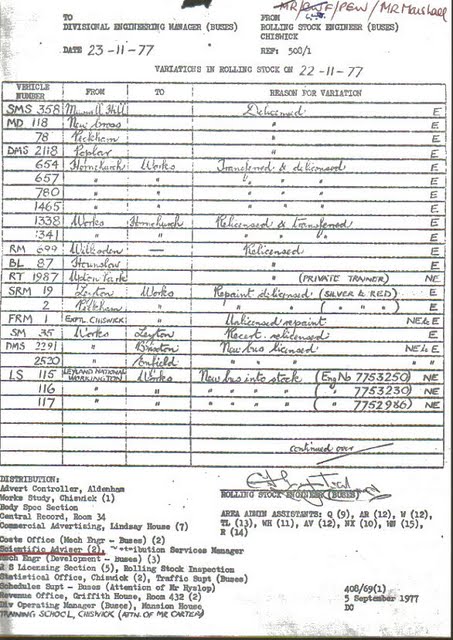 MR / / PEW / MR Marshall
TO FROM
DIVISIONAL ENGINEERING MANAGER (BUSES) ROLLING STOCK ENGINEER (BUSES)
CHISWICK
DATE 23-11-77 REF: 500/1
VARIATIONS IN ROLLING STOCK ON 22-11-77
VEHICLE NUMBER FROM TO REASON FOR VARIATION
SMS 358 Muswell Hill Delicensed E
MD 118 New Cross " E
78 Peckham " E
DMS 2118 Poplar " E
654 Hornchurch Works Transferred & delicensed E
657 " " " " " E
780 " " " " " E
1465 " " " " " E
1338 Works Hornchurch Relicensed & transferred E
1341 " " " " " E
RM 699 Willesden — Relicensed E
BL 87 Hounslow " E
RT 1987 Upton Park " (PRIVATE TRAINER) NE
SRM 19 Leyton Works Repaint delicensed (SILVER & RED) E
2 Peckham " " " ( " " " ) E
FRM 1 EXPTL CHISWICK " Unlicensed repaint NE & E
SM 35 Works Leyton Recert. relicensed E
DMS 2291 " Brixton New bus licensed NE & E
2520 " Enfield " " "
LS 115 LEYLAND NATIONAL WORKINGTON Works New bus into stock (Eng No 7753250) NE
116 " " " " " " ( " 7753230) NE
117 " " " " " " ( " 7752986) NE
continued over
DISTRIBUTION:
Advert Controller, Aldenham ROLLING STOCK ENGINEER (BUSES)
Works Study, Chiswick (1)
Body Spec Section
Central Record, Room 34 AREA ADMIN ASSISTANTS: Q (9), AR (12), W (12),
Commercial Advertising, Lindsay House (7) TL (13), WH (11), AV (12), NX (10), WN (15),
R (14)
Costs Office (Mech Engr - Buses) (2)
Scientific Adviser (2), Distribution Services Manager
Mech Engr (Development - Buses) (3)
R S Licensing Section (5), Rolling Stock Inspection
Statistical Office, Chiswick (2), Traffic Supt (Buses)
Schedules Supt - Buses (Attention of Mr Hyslop) 408/69(1)
Revenue Office, Griffith House, Room 432 (2) 5 September 1977
Div Operating Manager (Buses), Mansion House DO
TRAINING SCHOOL, CHISWICK (ATTN. OF MR CARTER)